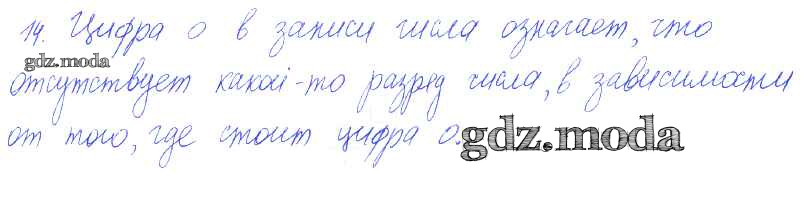 14. Цифра 0 в записи числа означает, что
gdz.moda
отсутствует какой-то разряд числа, в зависимости
от того, где стоит цифра 0.
gdz.moda